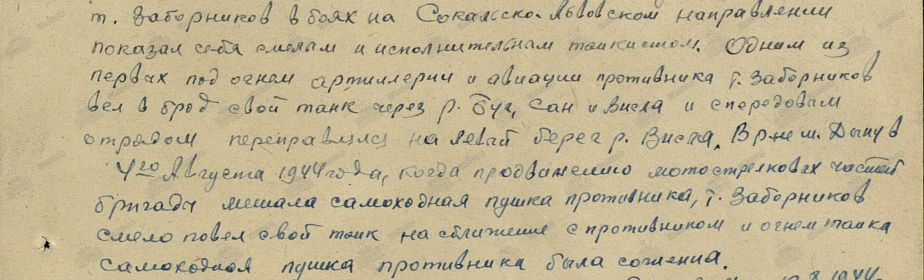 т. Заборников в боях на Сокальско-Львовском направлении
показал себя смелым и исполнительным танкистом. Одним из
первых под огнем артиллерии и авиации противника т. Заборников
вел в брод свой танк через р. Буг, Сан и Висла и с передовым
отрядом переправился на левый берег р. Висла. В р-не м. Дыпув
4го Августа 1944 года, когда продвижению мотострелковых частей
бригады мешала самоходная пушка противника, т. Заборников
смело повел свой танк на сближение с противником и огнем танка
самоходная пушка противника была сожжена.